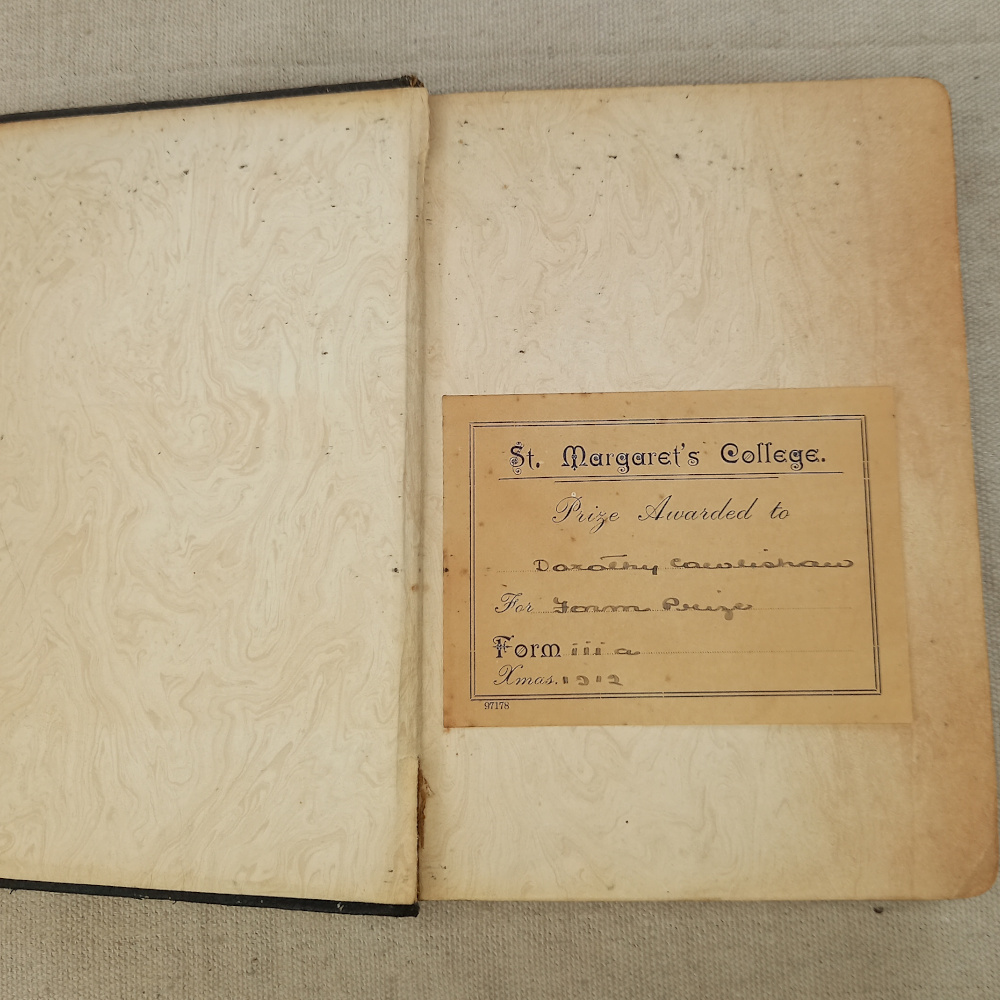 St. Margaret's College.
Prize Awarded to
Dorothy Cawlishaw
For Form Prize
Form iii a
Xmas. 1912
97178